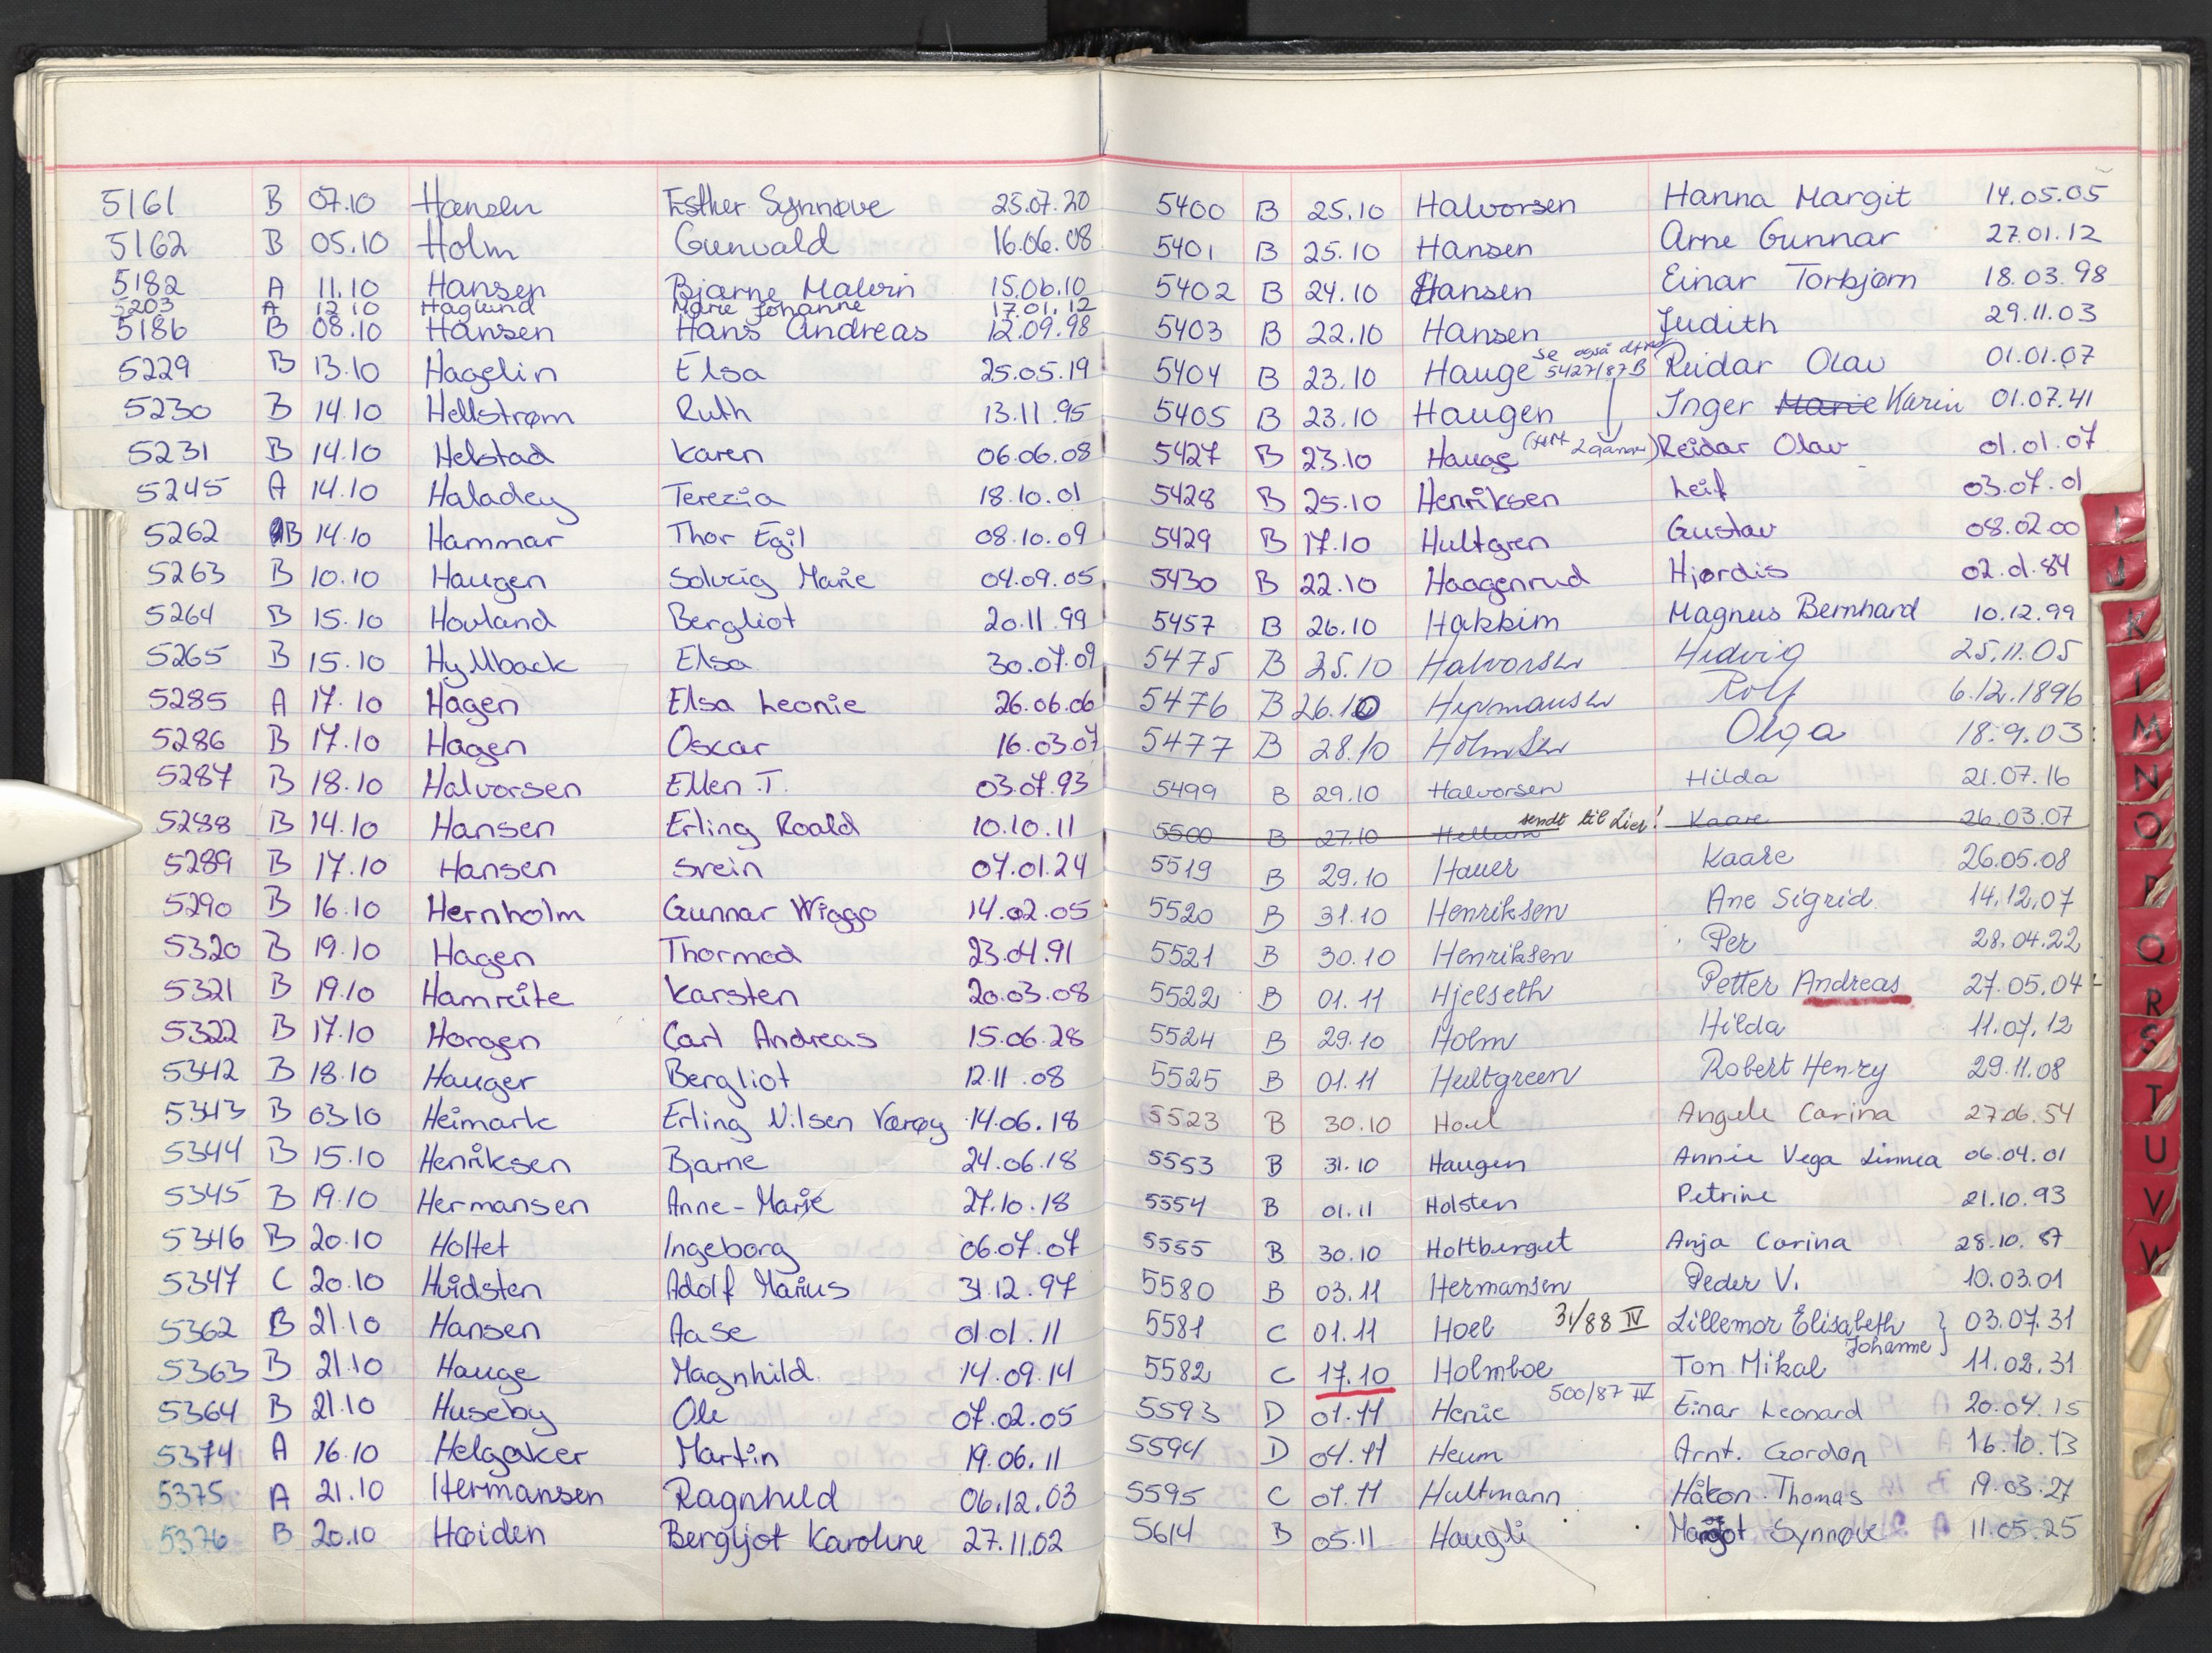 5161 B 07.10 Hansen Esther Synnøve 25.07.20
5162 B 05.10 Holm Gunvald 16.06.08
5182 A 11.10 Hansen Bjarne Malvin 15.06.10
5203 A 12.10 Haglund Marie Johanne 17.01.12
5186 B 08.10 Hansen Hans Andreas 12.09.98
5229 B 13.10 Hagelin Elsa 25.05.19
5230 B 14.10 Hellstrøm Ruth 13.11.95
5231 B 14.10 Helstad Karen 06.06.08
5245 A 14.10 Haladey Terezia 18.10.01
5262 B 14.10 Hammar Thor Egil 08.10.09
5263 B 10.10 Haugen Solveig Marie 04.09.05
5264 B 15.10 Hovland Bergliot 20.11.99
5265 B 15.10 Hyllback Elsa 30.07.09
5285 A 17.10 Hagen Elsa Leonie 26.06.06
5286 B 17.10 Hagen Oscar 16.03.07
5287 B 18.10 Halvorsen Ellen T. 03.07.93
5288 B 14.10 Hansen Erling Roald 10.10.11
5289 B 17.10 Hansen Svein 07.01.24
5290 B 16.10 Hernholm Gunnar Wiggo 14.02.05
5320 B 19.10 Hagen Thormod 23.04.91
5321 B 19.10 Hamreite Karsten 20.03.08
5322 B 17.10 Horgen Carl Andreas 15.06.28
5342 B 18.10 Hauger Bergliot 12.11.08
5343 B 03.10 Heimark Erling Nilsen Værøy 14.06.18
5344 B 15.10 Henriksen Bjarne 24.06.18
5345 B 19.10 Hermansen Anne-Marie 27.10.18
5346 B 20.10 Holtet Ingeborg 06.07.07
5347 C 20.10 Hvidsten Adolf Marius 31.12.97
5362 B 21.10 Hansen Aase 01.01.11
5363 B 21.10 Hauge Magnhild 14.09.14
5364 B 21.10 Huseby Ole 07.02.05
5374 A 16.10 Helgaker Martin 19.06.11
5375 A 21.10 Hermansen Ragnhild 06.12.03
5376 B 20.10 Høiden Bergljot Karoline 27.11.02
5400 B 25.10 Halvorsen Hanna Margit 14.05.05
5401 B 25.10 Hansen Arne Gunnar 27.01.12
5402 B 24.10 Hansen Einar Torbjørn 18.03.98
5403 B 22.10 Hansen Judith 29.11.03
se også
5404 B 23.10 Hauge 5427/87B Reidar Olav 01.01.07
5405 B 23.10 Haugen Inger Marie Karin 01.07.41
5427 B 23.10 Hauge 2 ganger) Reidar Olav 01.01.07
5428 B 25.10 Henriksen Leif 03.07.01
5429 B 17.10 Hultgren Gustav 08.02.00
5430 B 22.10 Haagenrud Hjørdis 02.01.84
5457 B 26.10 Hakkim Magnus Bernhard 10.12.99
5475 B 25.10 Halvorsen Hedvig 25.11.05
5476 B 26.10 Hermansen Rolf 6.12.1896
5477 B 28.10 Holmsen Olga 18.9.03
5499 B 29.10 Halvorsen Hilda 21.07.16
5500 B 27.10 Hellum sendt til Lier! Kaare 26.03.07
5519 B 29.10 Hauer Kaare 26.05.08
5520 B 31.10 Henriksen Ane Sigrid 14.12.07
5521 B 30.10 Henriksen Per 28.04.22
5522 B 01.11 Hjelseth Petter Andreas 27.05.04
5524 B 29.10 Holm Hilda 11.07.12
5525 B 01.11 Hultgreen Robert Henry 29.11.08
5523 B 30.10 Hoel Angele Carina 27.06.54
5553 B 31.10 Haugen Annie Vega Linnea 06.04.01
5554 B 01.11 Holsten Petrine 21.10.93
5555 B 30.10 Holtberget Anja Carina 28.10.87
5580 B 03.11 Hermansen Peder V. 10.03.01
5581 C 01.11 Hoel 31/88 IV Lillemor Elisabeth 03.07.31
Johanne
5582 C 17.10 Holmboe Ton Mikal 11.02.31
5593 D 01.11 Henie 500/87 IV Einar Leonard 20.04.15
5594 D 04.11 Heum Arnt. Gordon 16.10.13
5595 C 01.11 Hultmann Håkon Thomas 19.03.27
5614 B 05.11 Haugli Margot Synnøve 11.05.25
I
J
K
L
M
N
O
P
Q
R
S
T
U
V
W